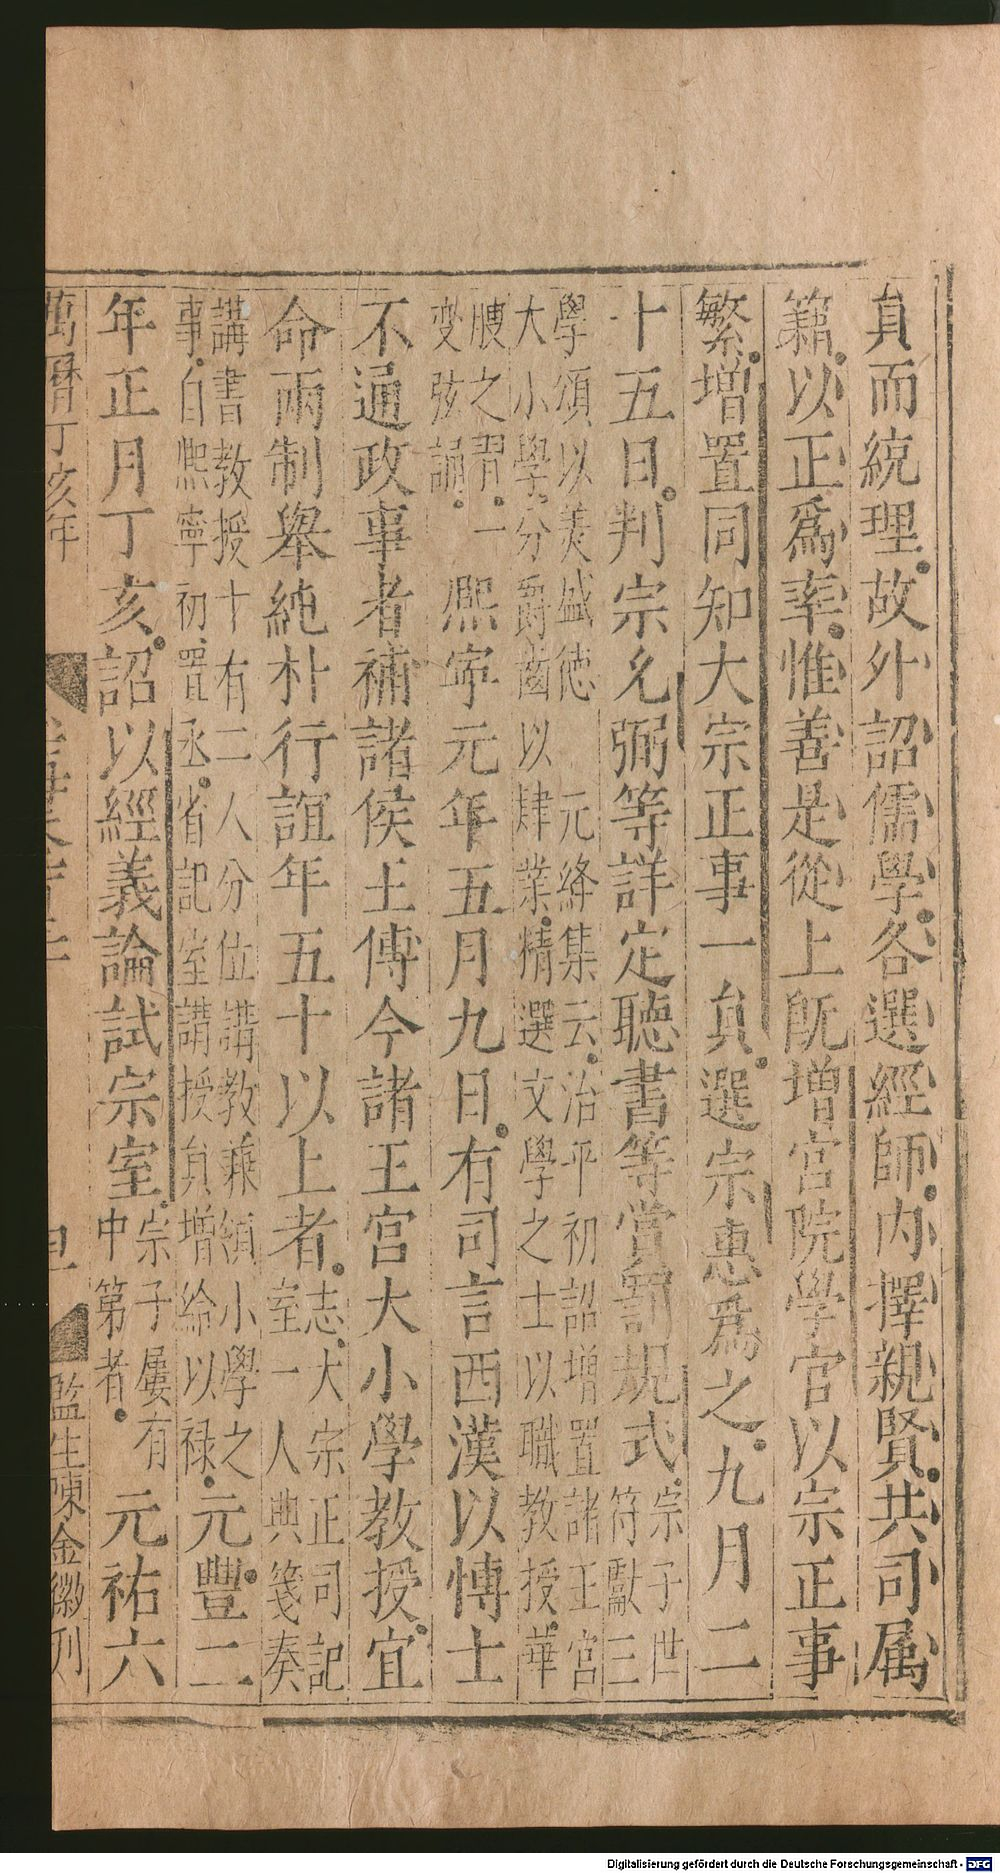 貟而統理故外詔儒學各選經師内擇親賢共司属
籍以正爲率惟善是從上既增宫院學官以宗正事
繁增置同知大宗正事一貟選宗惠爲之九月二
十五日判宗允弼等詳定聽書等賞罰規式宗子世
符獻三
學頌以美盛德 元絳集云治平初詔增置諸王宫
大小學分爵齒以肆業精選文學之士以職教授華
腴之胃一
变弦誦 熙寧元年五月九日有司言西漢以愽士
不通政事者補諸侯王傅今諸王宫大小學教授宜
命兩制舉純朴行誼年五十以上者志大宗正司記
室一人典箋奏
講書教授十有二人分位講教兼領小學之
事自熙寧初置丞省記室講授貟增給以禄元豐二
年正月丁亥詔以經義論試宗室宗子屢有
中第者 元祐六
萬曆丁亥年
監生陳金徽刊
Digitalisierung gefördert durch die Deutsche Forschungsgemeinschaft - DFG